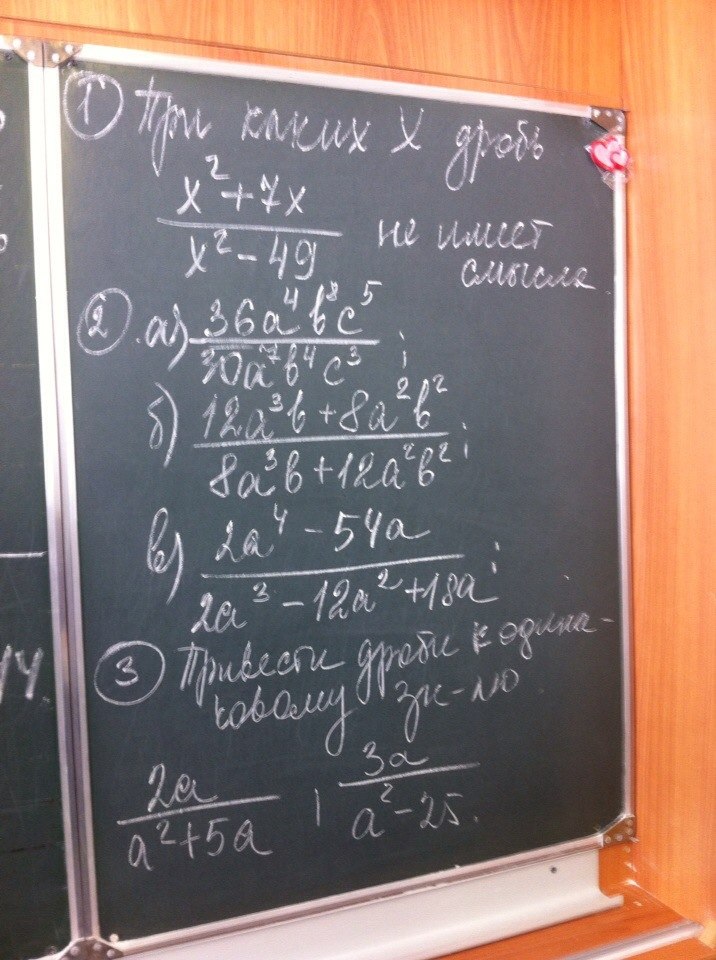 ① При каких X дробь
x² + 7x / x² - 49 не имеет
смысла
② а) 36a⁴b⁸c⁵ / 30a⁷b⁴c³ ;
б) 12a³b + 8a²b² / 8a³b + 12a²b² ;
в) 2a⁴ - 54a / 2a³ - 12a² + 18a ;
③ Привести дроби к одина-
ковому зн-лю
2a / a² + 5a ; 3a / a² - 25.